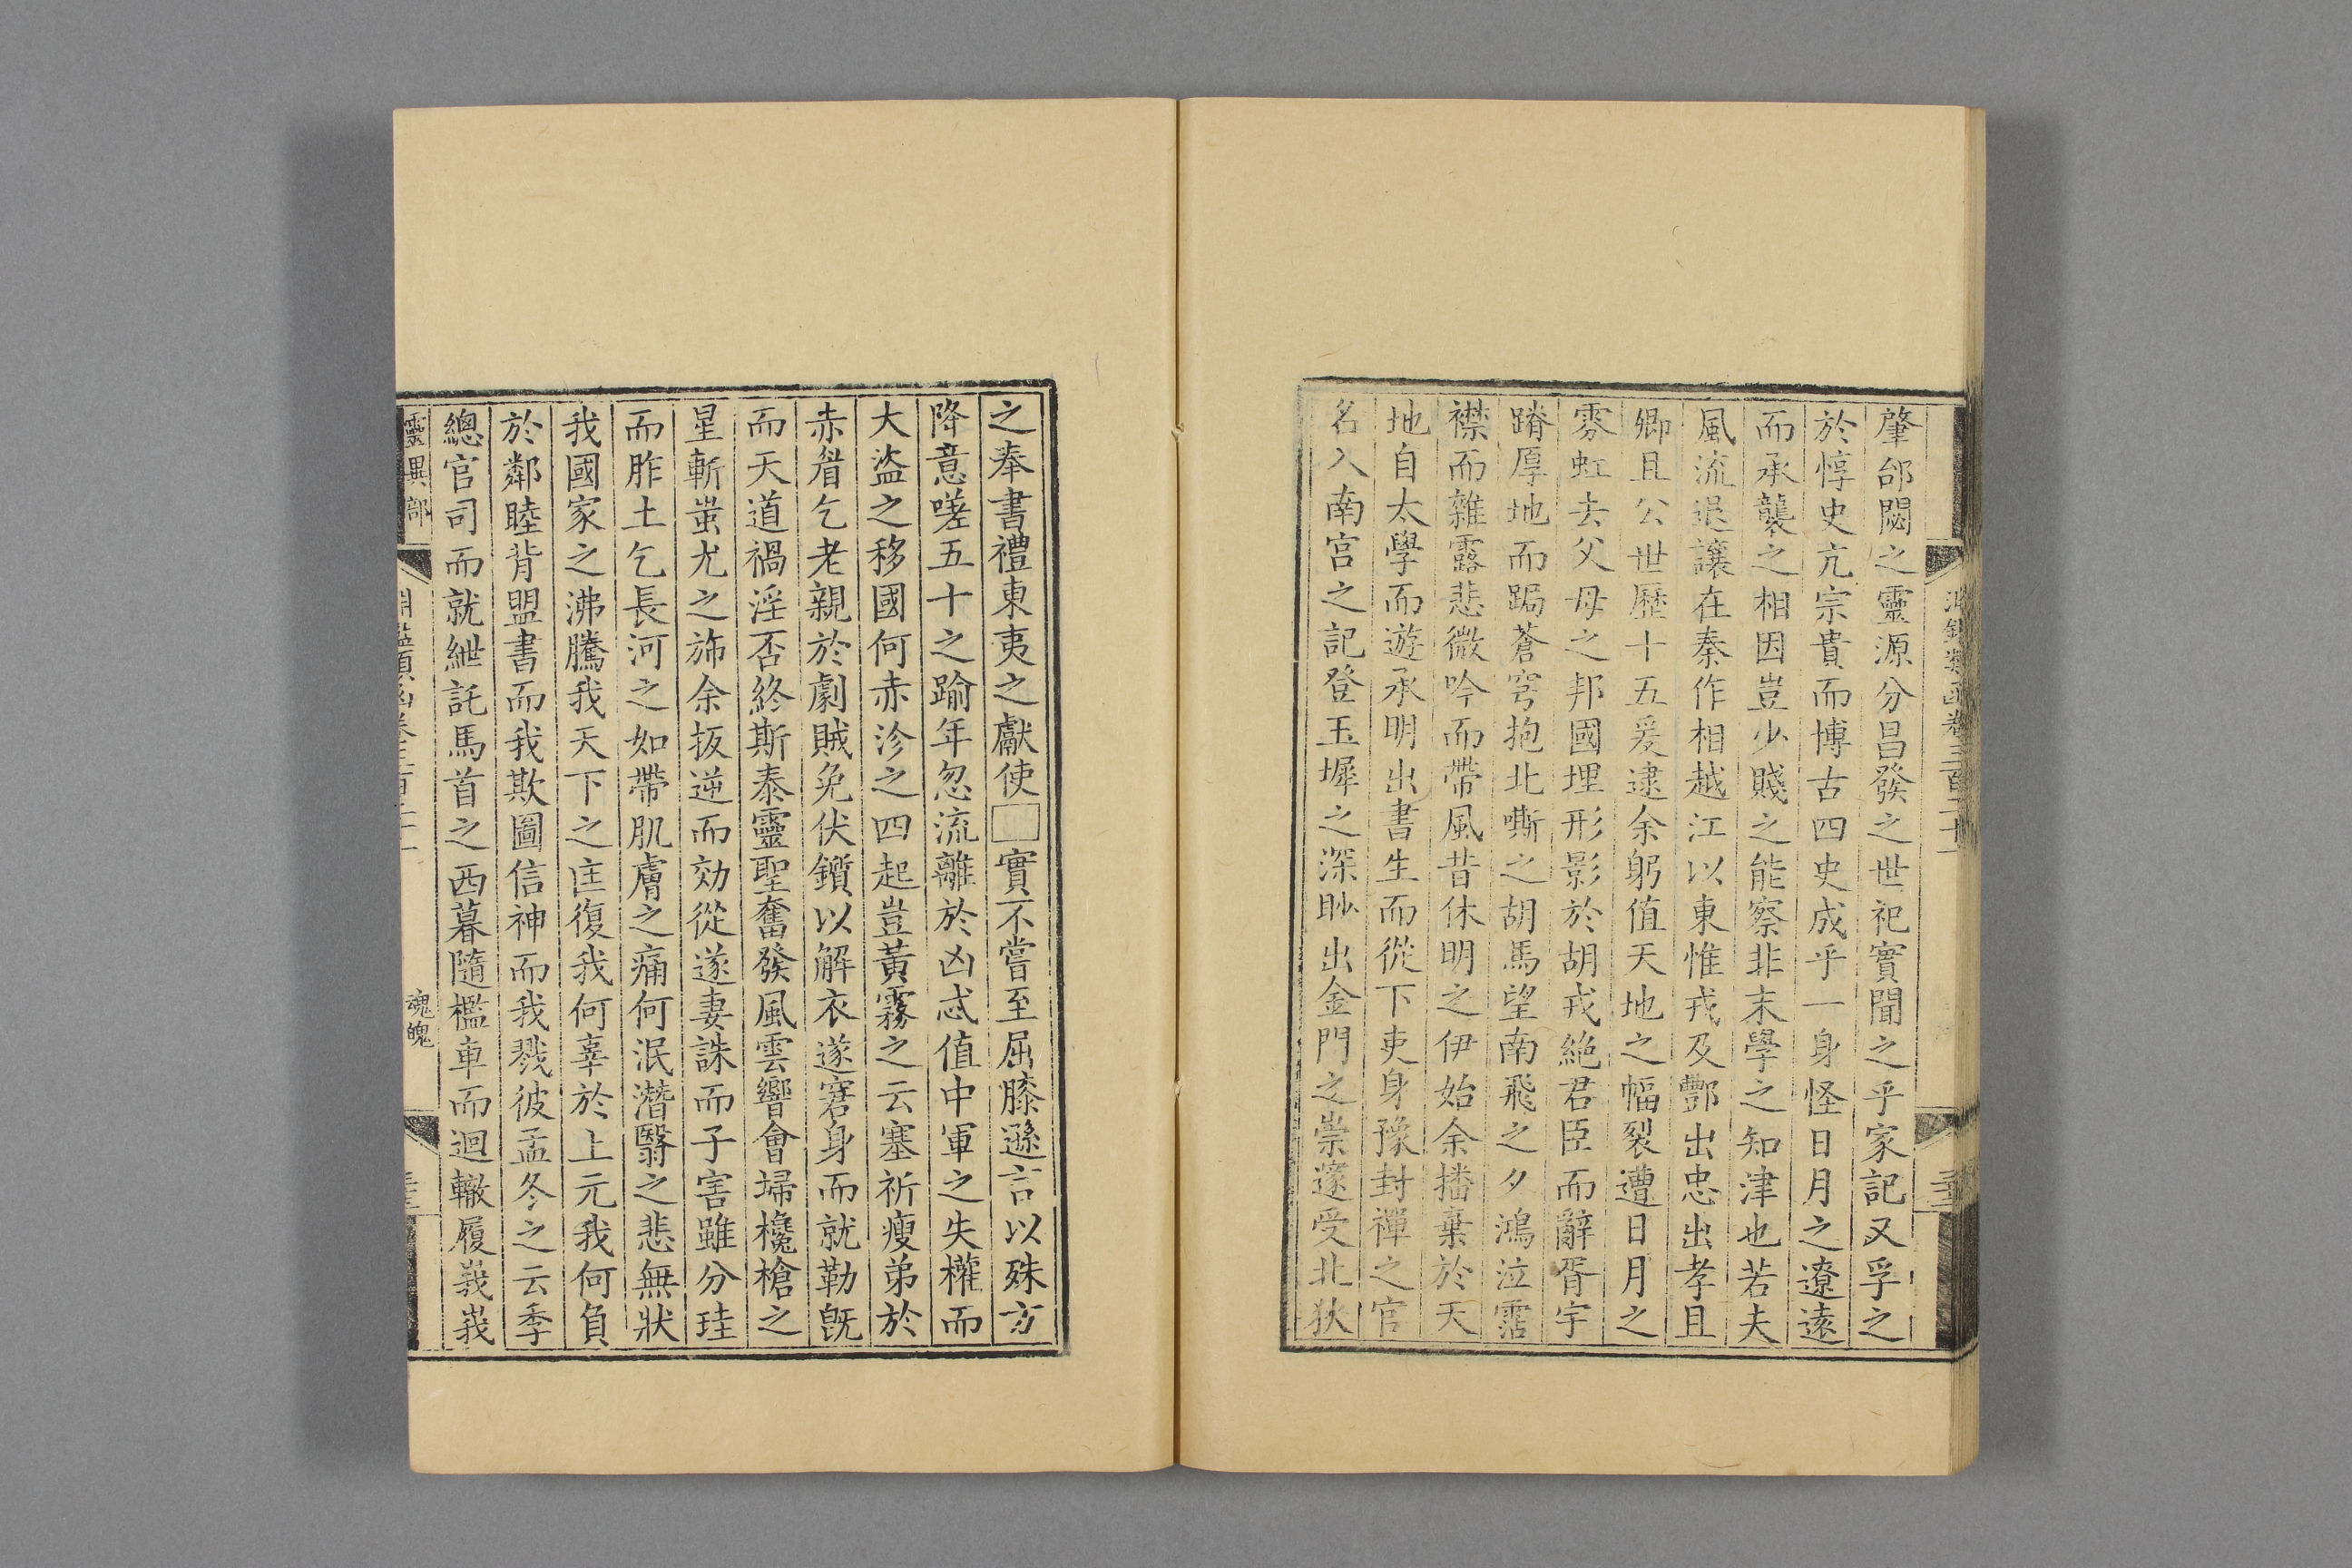 肇邰閟之靈源分昌發之世祀實聞之乎家記又孚之
於惇史亢宗貴而博古四史成乎一身怪日月之遼遠
而承襲之相因豈少賤之能察非末學之知津也若夫
風流退讓在秦作相越江以東惟戎及酆出忠出孝且
卿且公世歷十五爰逮余躬值天地之幅裂遭日月之
雰虹去父母之邦國埋形影於胡戎絶君臣而辭胥宇
蹐厚地而跼蒼穹抱北嘶之胡馬望南飛之夕鴻泣霑
襟而雜露悲微吟而帶風昔休明之伊始余播棄於天
地自太學而遊承明出書生而從下吏身豫封禪之官
名入南宫之記登玉墀之深眇出金門之崇邃受北狄
之奉書禮東夷之獻使□實不嘗至屈膝遜言以殊方
降意嗟五十之踰年忽流離於凶忒值中軍之失權而
大盜之移國何赤沴之四起豈黃霧之云塞祈瘦弟於
赤眉乞老親於劇賊免伏鑕以解衣遂窘身而就勒旣
而天道禍淫否終斯泰靈聖奮發風雲響會埽欃槍之
星斬蚩尤之斾余抜逆而効從遂妻誅而子害雖分珪
而胙土乞長河之如帶肌膚之痛何泯潛翳之悲無狀
我國家之沸騰我天下之匡復我何辜於上元我何負
於鄰睦背盟書而我欺圖信神而我戮彼孟冬之云季
總官司而就紲託馬首之西暮隨檻車而迴轍履峩峩
靈異部
魂魄